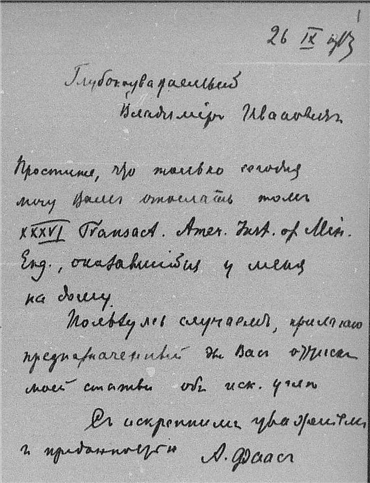 1
26 IX 1913
Глубокоуважаемый
Владимiръ Ивановичъ
Простите, что только сегодня
могу Вамъ отослать томъ
XXXVI Transact. Amer. Inst. of Min.
Eng., оказавшійся у меня
на дому.
Пользуясь случаемъ, прилагаю
предназначенный для Васъ оттискъ
моей статьи объ иск. углѣ
Съ искреннимъ уваженіемъ
и преданностью А. Фаасъ